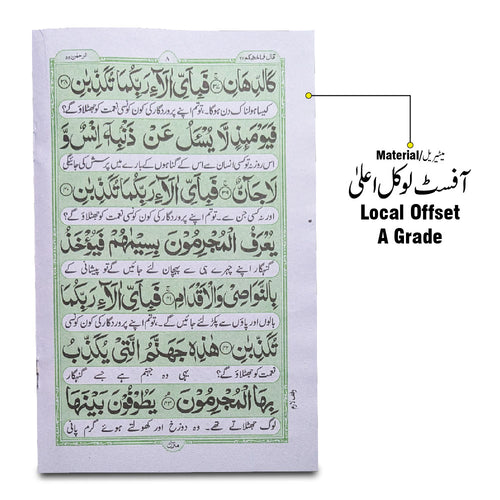 قال فما خطبكم ٢٧
٨
الرحمٰن ٥٥
كَالدِّهَانِ ۚ فَبِأَيِّ اٰلَآءِ رَبِّكُمَا تُكَذِّبٰنِ
کیسا ہولناک دن ہوگا۔ تو تم اپنے پروردگار کی کون کونسی نعمت کو جھٹلاؤ گے؟
فَيَوْمَئِذٍ لَّا يُسْـَٔلُ عَنْ ذَنْۢبِهٖٓ اِنْسٌ وَّ
اس روز نہ تو کسی انسان سے اس کے گناہوں کے بارے میں پرسش کی جائیگی
لَا جَآنٌّ ۚ فَبِأَيِّ اٰلَآءِ رَبِّكُمَا تُكَذِّبٰنِ
اور نہ کسی جن سے۔ تو تم اپنے پروردگار کی کون کونسی نعمت کو جھٹلاؤ گے؟
يُعْرَفُ الْمُجْرِمُوْنَ بِسِيْمٰهُمْ فَيُؤْخَذُ
گنہگار اپنے چہرے ہی سے پہچان لئے جائیں گے تو پیشانی کے
بِالنَّوَاصِيْ وَالْاَقْدَامِ ۚ فَبِأَيِّ اٰلَآءِ رَبِّكُمَا
بالوں اور پاؤں سے پکڑ لئے جائیں گے۔ تو تم اپنے پروردگار کی کون کونسی
تُكَذِّبٰنِ هٰذِهٖ جَهَنَّمُ الَّتِيْ يُكَذِّبُ
نعمت کو جھٹلاؤ گے؟ یہی وہ جہنم ہے جسے گنہگار
بِهَا الْمُجْرِمُوْنَ ۘ يَطُوْفُوْنَ بَيْنَهَا
لوگ جھٹلاتے تھے۔ وہ دوزخ اور کھولتے ہوئے گرم پانی
منزل
وقف لازم
Material/میٹیریل
آفسٹ لوکل اعلیٰ
Local Offset
A Grade